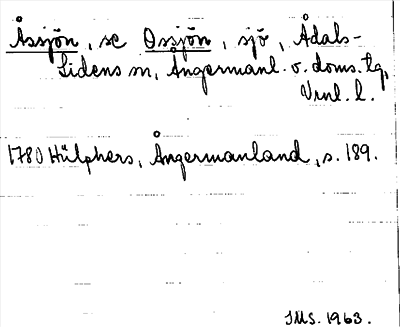 Åssjön, se Ossjön, sjö, Ådals-
Lidens sn, Ångermanl. v. doms. tg,
Vnl. l.
1780 Hülphers, Ångermanland, s. 189.
IMS. 1963.